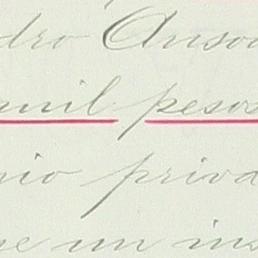 dro Anso
mil pesos
nio priva
ne un ins